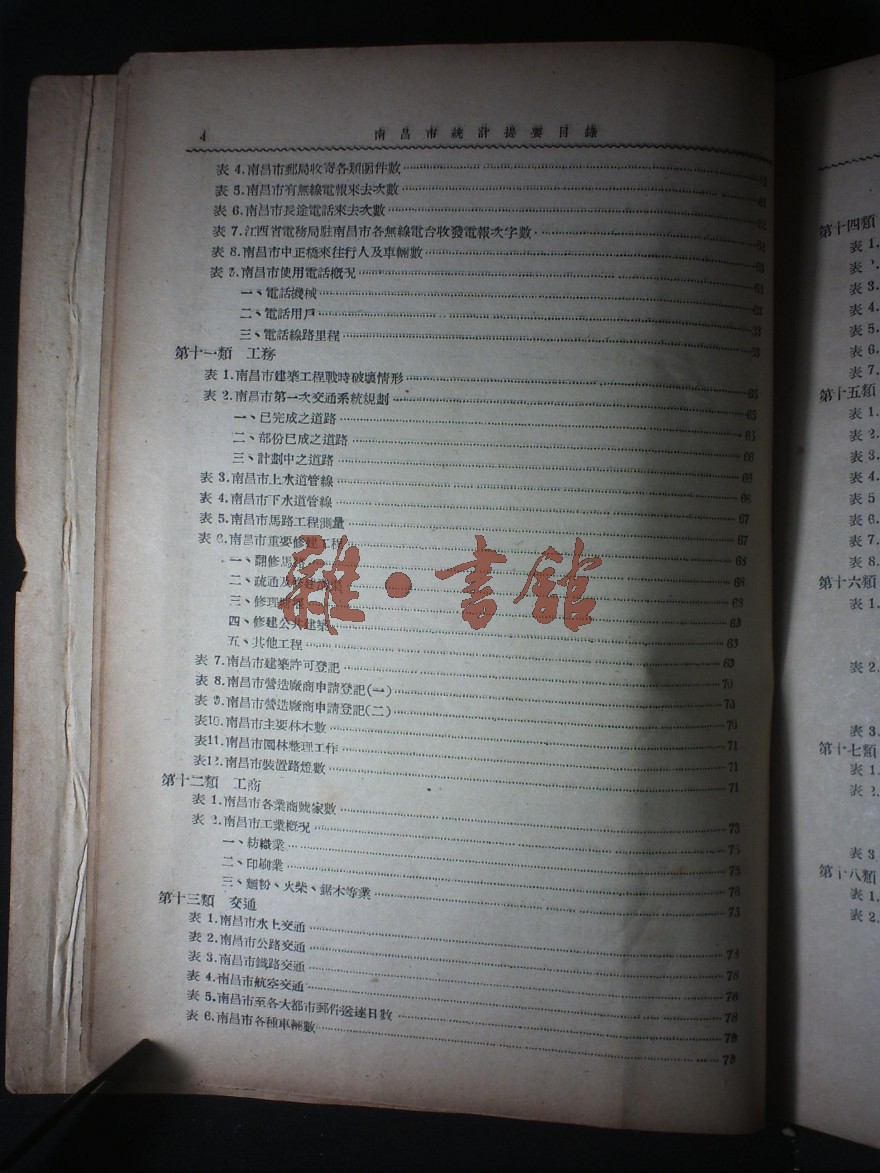 4
南昌市統計提要目錄
表 4.南昌市郵局收寄各類函件數
表 5.南昌市有無線電報來去次數
表 6.南昌市長途電話來去次數
表 7.江西省電務局駐南昌市各無線電台收發電報次字數
表 8.南昌市中正橋來往行人及車輛數
表 南昌市使用電話概況
一、電話機械
二、電話用戶
三、電話線路里程
第十一類 工務
表 1.南昌市建築工程戰時破壞情形 65
表 2.南昌市第一次交通系統規劃 65
一、已完成之道路 65
二、部份已成之道路 66
三、計劃中之道路 66
表 3.南昌市上水道管線 66
表 4.南昌市下水道管線 67
表 5.南昌市馬路工程測量 67
表 6.南昌市重要修建工程 68
一、翻修馬路 68
二、疏通及 68
三、修理 69
四、修建公共建築 69
五、其他工程 69
表 7.南昌市建築許可登記 70
表 8.南昌市營造廠商申請登記(一) 70
表 9.南昌市營造廠商申請登記(二) 70
表10.南昌市主要林木數 71
表11.南昌市園林整理工作 71
表12.南昌市裝置路燈數 71
第十二類 工商
表 1.南昌市各業商號家數 73
表 2.南昌市工業概況 75
一、紡織業 75
二、印刷業 76
三、麵粉、火柴、鋸木等業
第十三類 交通
表 1.南昌市水上交通 78
表 2.南昌市公路交通 78
表 3.南昌市鐵路交通 78
表 4.南昌市航空交通 78
表 5.南昌市至各大都市郵件送達日數
表 6.南昌市各種車輛數
雜·書館
第十四類
表 1.
表
表 3.
表 4.
表 5.
表 6.
表 7.
第十五類
表 1.
表 2.
表 3.
表 4.
表 5
表 6.
表 7.
表 8.
第十六類
表 1.
表 2.
表 3.
第十七類
表 1.
表 2.
表 3
第十八類
表 1.
表 2.